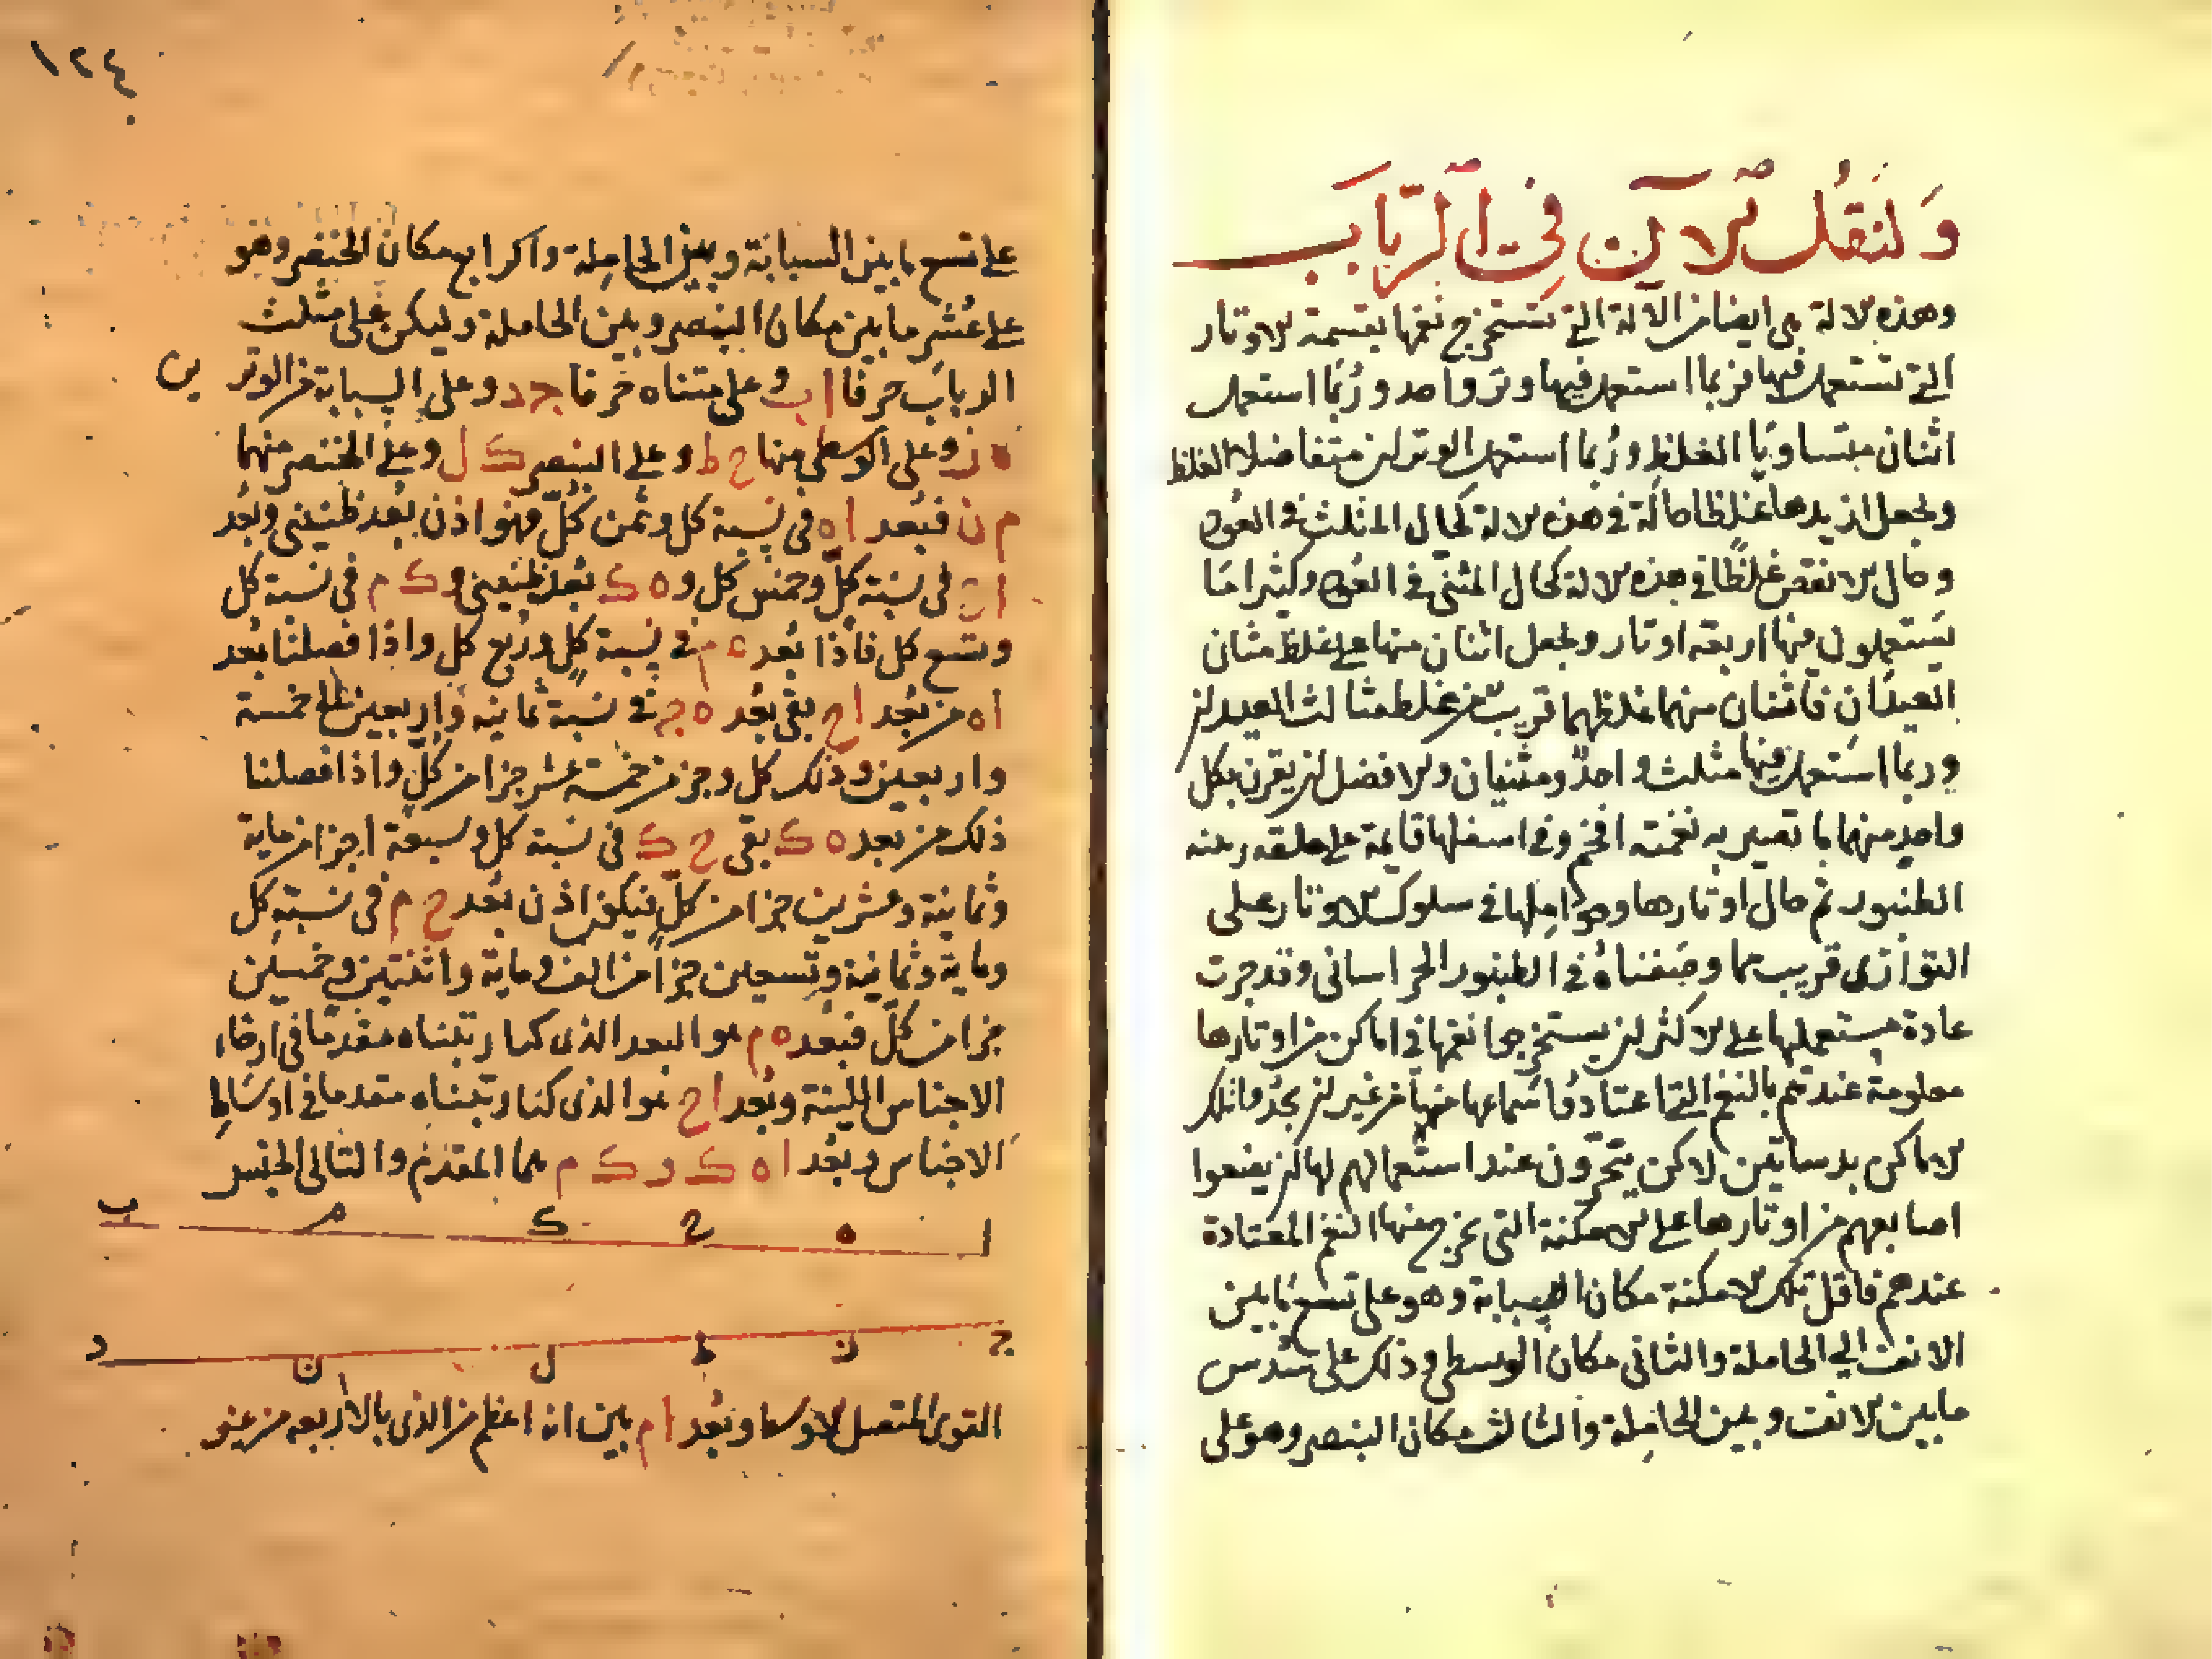 ولنقل الآن في الرباب
وهذه الالة هي ايضا من الالة التي تستخرج نغمها بقسمة الاوتار
التي تستعمل فيها فربما استعمل فيها وتر واحد وربما استعمل
اثنان متساويا الغلظ وربما استعمل الوتران متفاضلا الغلظ
ويجعل ازيدهما غلظا حاله في هذه الالة كحال المثلث في العود
وحال الانقص غلظا في هذه الالة كحال المثنى في العود وكثيرا ما
يستعملون فيها اربعة اوتار ويجعل اثنان منها على غلظ مثاني
العيدان فاثنان منهما غلظهما قريب من غلظ مثالث العيدان
وربما استعمل فيها مثلث واحد ومثنيان والافضل ان يقرن بكل
واحد منهما ما تصير به نغمته افخم وفي اسفلها قايمة على خلقه زبيبة
الطنبور ثم حال اوتارها وحواملها في سلوك الاوتار على
التوازى قريب مما وصفناه في الطنبور الخراساني وقد جرت
عادة مستعمليها على الاكثر ان يستخرجوا نغمها في اماكن من اوتارها
معلومة عندهم بالنغم التي اعتادوا سماعها منها من غير ان يحدوا تلك
الاماكن بدساتين لاكن يتحرون عند استعمالهم لها ان يضعوا
اصابعهم من اوتارها على الامكنة التي تخرج منها النغم المعتادة
عندهم فاقل تلك الامكنة مكان السبابة وهو على تسع ما بين
الانف الي الحاملة والثانى مكان الوسطى وذلك على سدس
مابين الانف وبين الحاملة والثالث مكان البنصر وهو على
١٢٤
على تسع ما بين السبابة وبين الحاملة والرابع مكان الخنصر وهو
على عشر ما بين مكان البنصر وبين الحاملة وليكن على مثلث
الرباب حرفا ا ب وعلى مثناه حرفا ج د وعلى السبابة من الوترين
ه ز وعلى الوسطى منها ح ط وعلى البنصر ك ل وعلى الخنصر منهما
م ن فبعد ا ه في نسبة كل وثمن كل فهو اذن بعد طنيني وبعد
ا ح في نسبة كل وخمس كل و ه ك بعد طنيني و ك م في نسبة كل
وتسع كل فاذا بعد ه م في نسبة كل وربع كل واذا فصلنا بعد
ا ه من بعد ا ح بقي بعد ه ح في نسبة ثمانيه واربعين الى خمسة
واربعين وذلك كل وجز من خمسة عشر جزا من كل واذا فصلنا
ذلك من بعد ه ك بقى ح ك في نسبة كل وسبعة اجزا من ماية
وثمانية وعشرين جزا من كل فيكون اذن بعد ح م في نسبة كل
وماية وثمانية وتسعين جزا من الف وماية واثنتين وخمسين
جزا من كل فبعد ه م هو البعد الذى كنا رتبناه مقدما في ارخاء
الاجناس اللينة وبعد ا ح هو الذى كنا رتبناه متقدما في اوساط
الاجناس وبعد ا ه ك و ك م هما المقدم والتالى الجنس
ا ه ح ك م ب
ج ز ط ل ن د
القوى المتصل الاوسط وبعد ا م بين انه اعظم من الذى بالاربعه من عنو